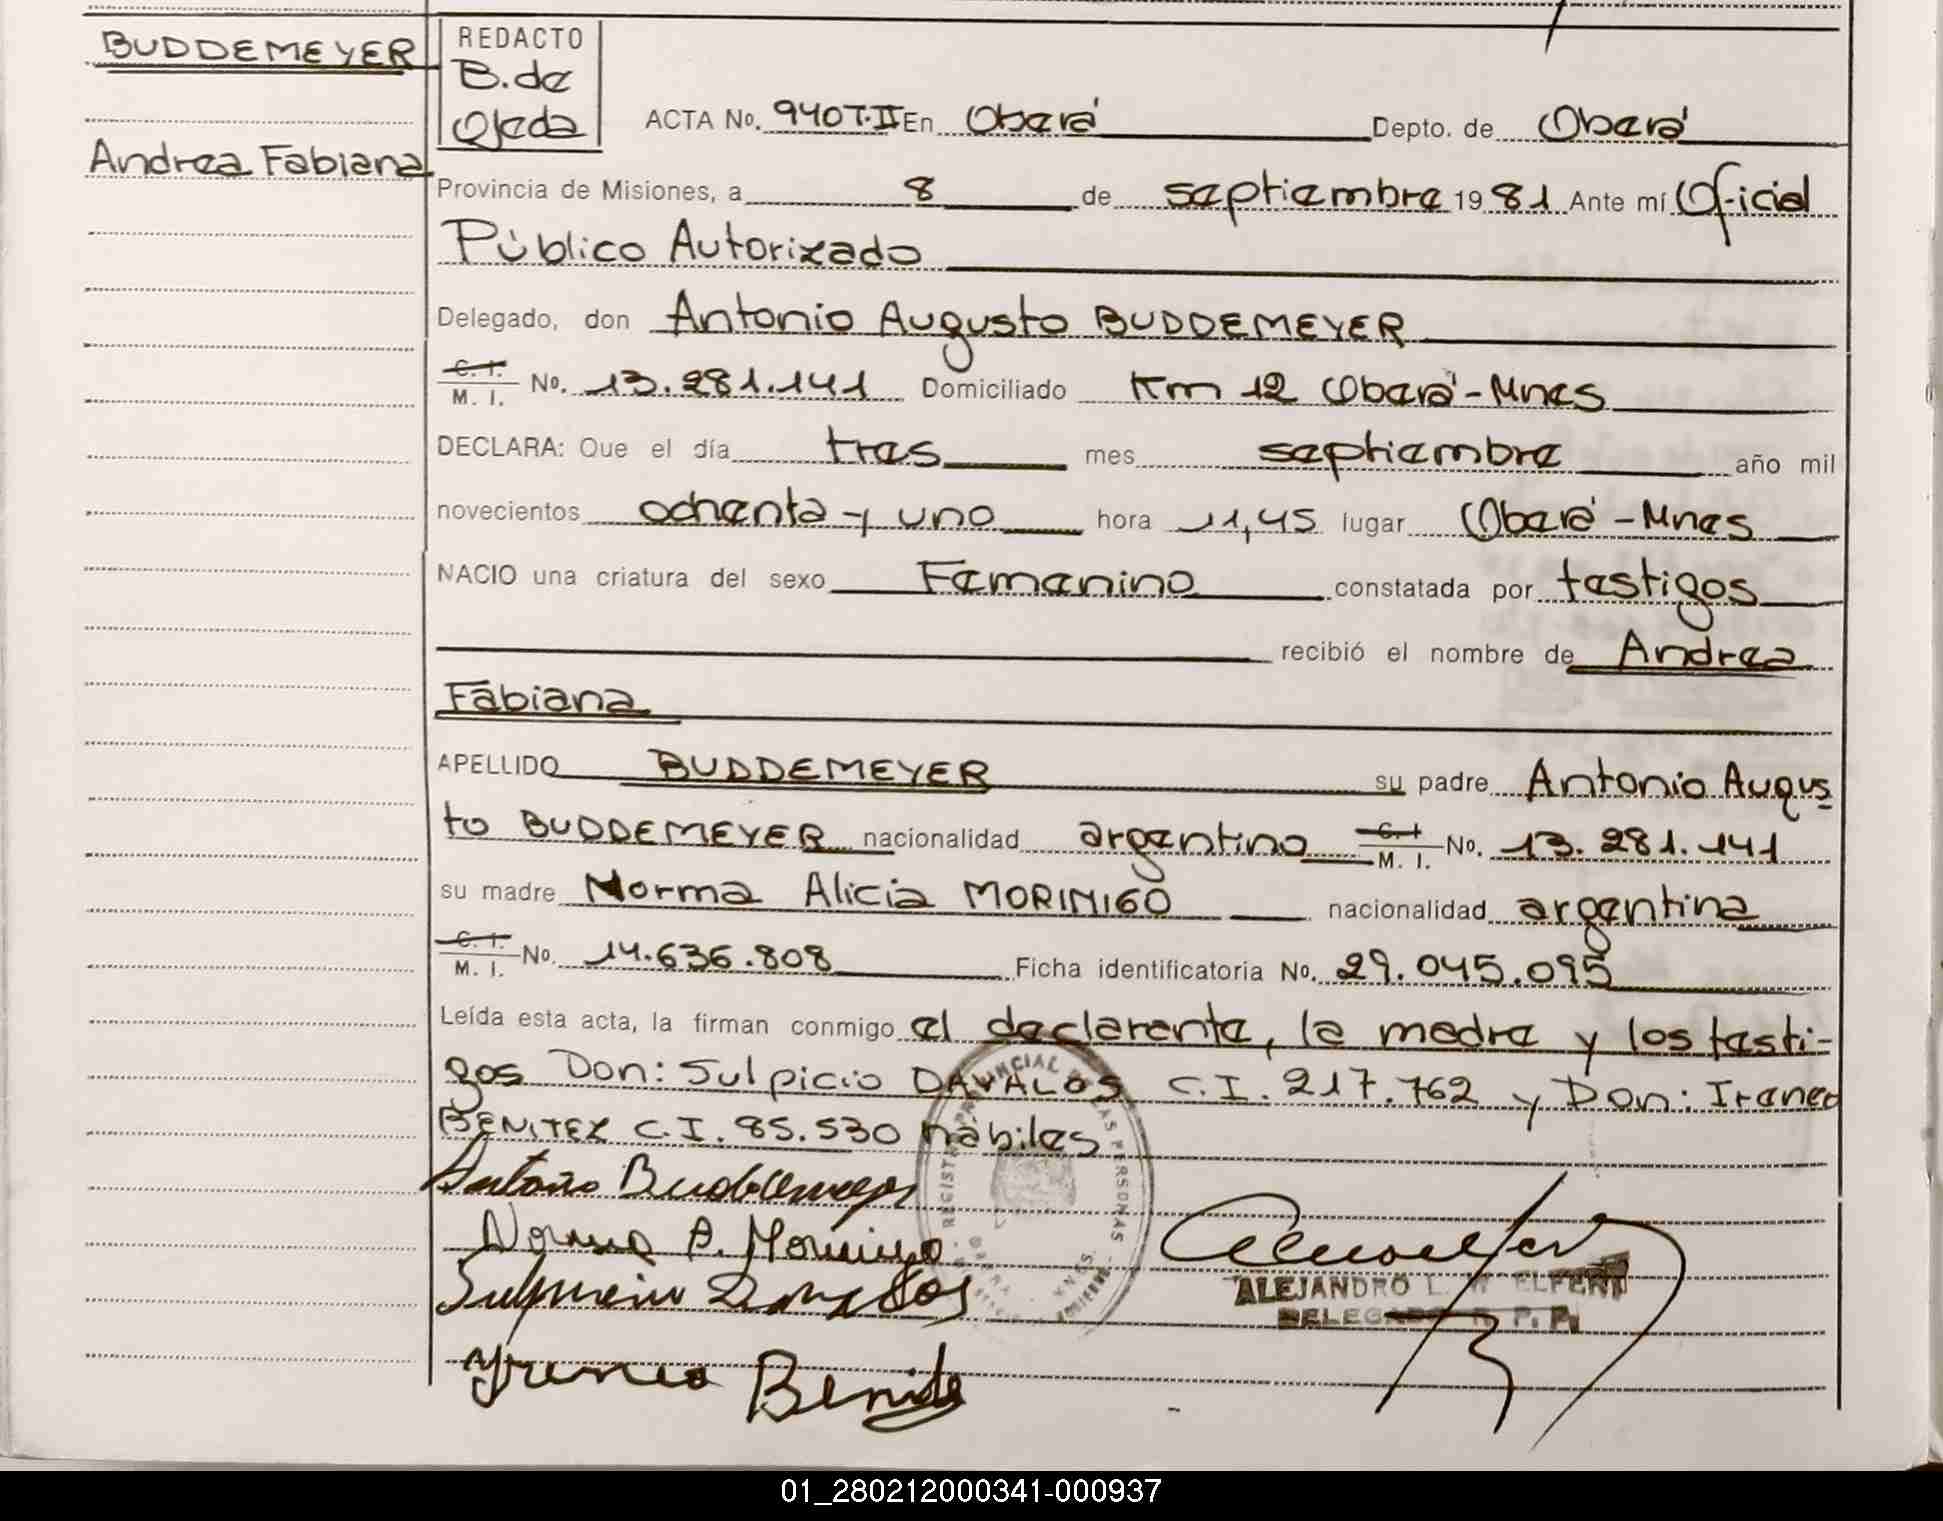 BUDDEMEYER
Andrea Fabiana
REDACTO
B. de
Ojeda
ACTA No. 940 T. II En Oberá Depto. de Oberá
Provincia de Misiones, a 8 de septiembre 1981 Ante mí Oficial
Público Autorizado
Delegado, don Antonio Augusto BUDDEMEYER
C. I. M. I. No. 13.281.141 Domiciliado Km 12 Oberá - Mnes
DECLARA: Que el día tres mes septiembre año mil
novecientos ochenta y uno hora 11,45 lugar Oberá - Mnes
NACIO una criatura del sexo Femenino constatada por testigos
recibió el nombre de Andrea
Fabiana
APELLIDO BUDDEMEYER su padre Antonio Augus
to BUDDEMEYER nacionalidad argentino C. I. M. I. No. 13.281.141
su madre Norma Alicia MORINIGO nacionalidad argentina
C. I. M. I. No. 14.636.808 Ficha identificatoria No. 29.045.095
Leída esta acta, la firman conmigo el declarente, la madre y los testi-
gos Don: Sulpicio DAVALOS C.I. 217.762 y Don: Ireneo
BENITEZ C.I. 85.530 habiles
Antonio Buddemeyer
Norma A. Morinigo
Sulpicio Davalos
Yreneo Benite
REGISTRO PROVINCIAL DE LAS PERSONAS
ALEJANDRO L. W. ELFERT
DELEGADO R. P. P.
01_280212000341-000937